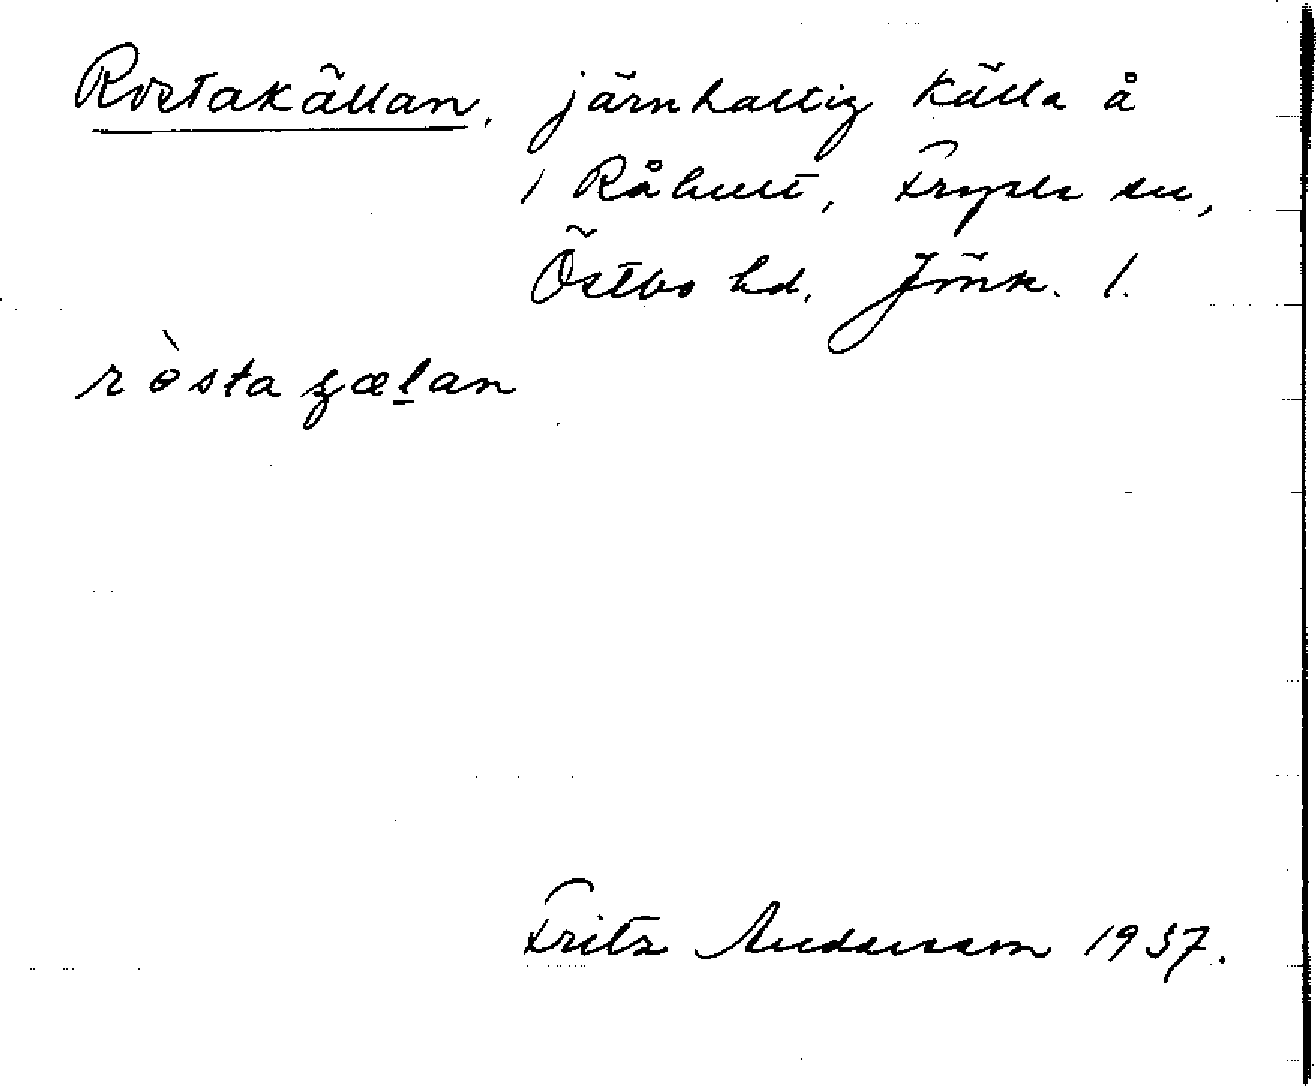 Rostakällan, järnhaltig källa å
1 Råhult, Fryele sn,
Östbo hd. Jönk. l.
ròsta ʂæḻan
Fritz Andersson 1937.